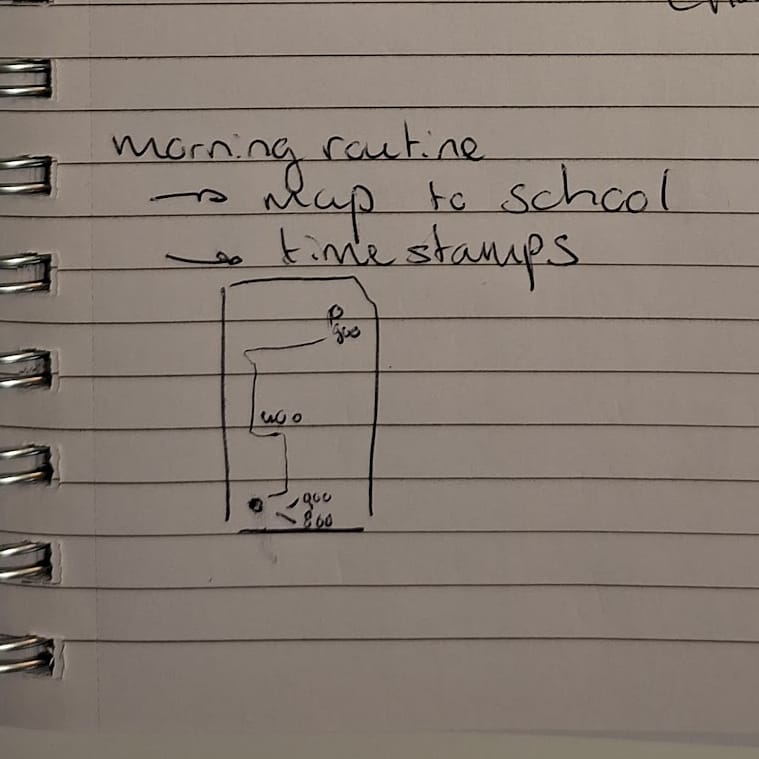 morning routine
→ Map to school
→ time stamps
900
900
800